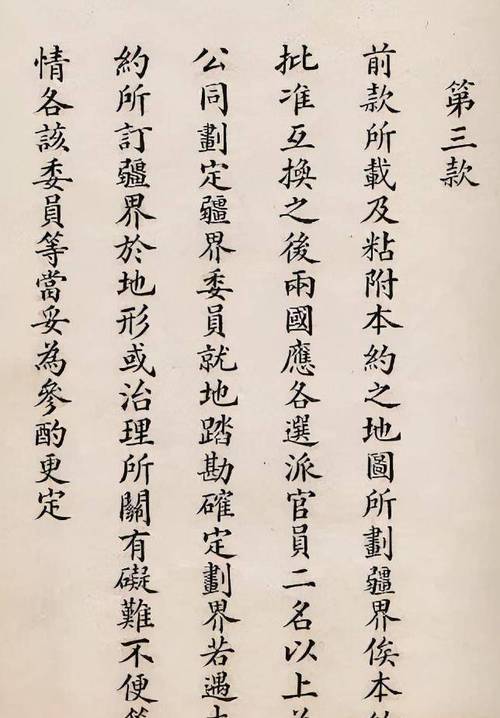 第三款
前款所載及粘附本約之地圖所劃疆界俟本
批准互換之後兩國應各選派官員二名以上
公同劃定疆界委員就地踏勘確定劃界若遇
約所訂疆界於地形或治理所關有礙難不便
情各該委員等當妥為參酌更定